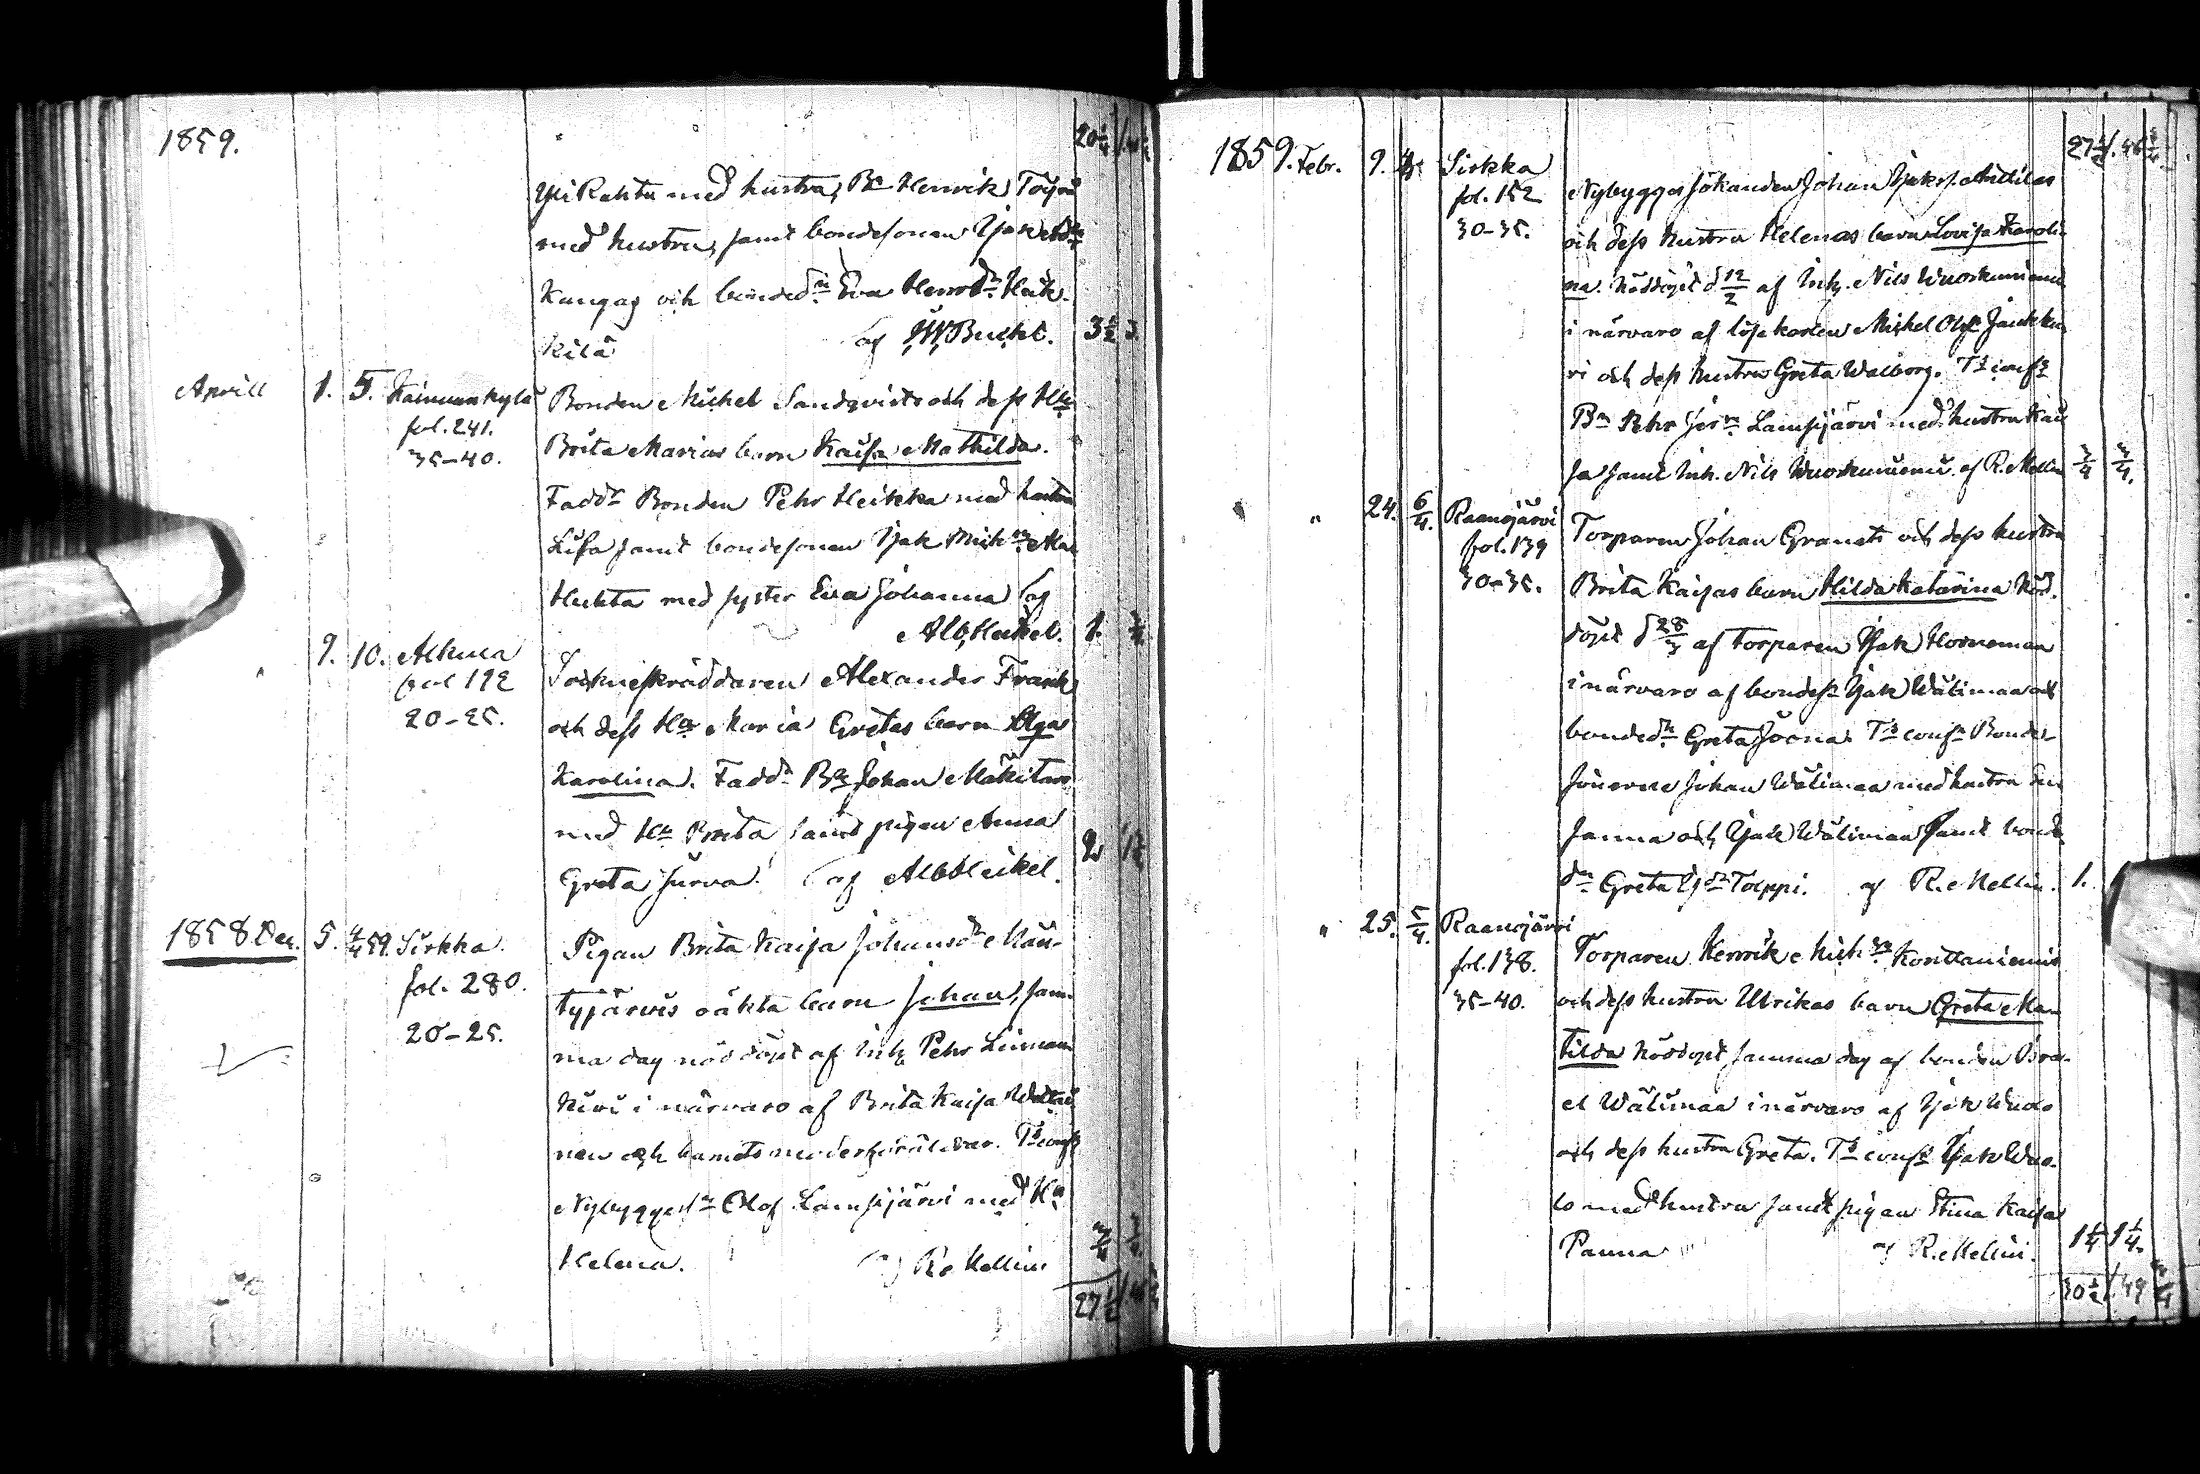 1859.
20 1/4
YliRahtu med hustru, Bn Henrik Toijvo
med hustru, samt bondesonen Isak
Kangas och bonded:n Eva Henr.dr Heik-
kilä af J.W. Bucht. 3 1/2 3
Aprill 1. 5. Kainuunkylä Bonden Mickel Sandqvists och dess Hu
fol. 241. Brita Marias barn Kaisa Mathilda.
35-40.
Faddr Bonden Pehr Heikka med hustru
Lisa samt bondesonen Isak Mich:n Ma
Huhta med syster Eva Johanna af
Alb. Heikel. 1.
9. 10. Alkula Sockneskräddaren Alexander Frank
fol 192
20-25. och dess Hu Maria Gretas barn Olga
Karolina. Faddr Bn Johan Mäkitalo
med Hu Brita samt pigan Anna
Greta Surva. af Alb Heikel. 2
1858 Dec. 5. 4/4 59. Sirkka Pigan Brita Kaisa Johansdr Män-
fol. 280. tyjärvis oäkta barn Johan, sam-
20-25. ma dag nöddöpt af Inh. Pehr Linnan
kivi i närvaro af Brita Kaisa
nen och barnets moderföräldrar. Ts conf
Nybyggessn Olof Lampsijärvi med Hu
Helena. af R. Mellin 3/4 3/4
27 1/2
1859. Febr. 9. Sirkka Nybyggessökanden Johan Isaks. Anttilas
27 1/2
fol. 152
30-35. och dess hustru Helenas barn Lovisa Karoli-
na. Nöddöpt d 12/2 af Inh. Nils Wuoskuniemi
i närvaro af lösekarlen Mickel Olofs Jänkku
ri och dess hustru Greta Walborg. Ts conf
Bn Pehr Jör:n Lampsijärvi med hustru Kai
sa samt Inh. Nils Wuoskuniemi. af R. Mellin 3/4 3/4.
" 24. 6/4. Raanojärvi Torparen Johan Granats och dess hustru
fol. 139
30-35. Brita Kaisas barn Hilda Katarina Nöd-
döpt d 28/3 af torparen Isak Horneman
i närvaro af bondess Isak Wälimaa och
bonded:r Greta Joona. Ts conf Bonde-
sönerne Johan Wälimaa med hustru Su
sanna och Isak Wälimaa samt bonde
dn Greta Isdr Tolppi. af R. Mellin. 1.
" 25. 5/4. Raanojärvi Torparen Henrik Mich:n Konttaniemis
fol. 138.
35-40. och dess hustru Ulrikas barn Greta Ma-
tilda Nöddöpt samma dag af bonden Isra-
el Wälimaa i närvaro af Isak Wuolo
och dess hustru Greta. Ts conf Isak Wuo-
lo med hustru samt pigan Stina Kaisa
Panna af R. Mellin. 1 1/4 1 1/4.
30 1/2 49 3/4